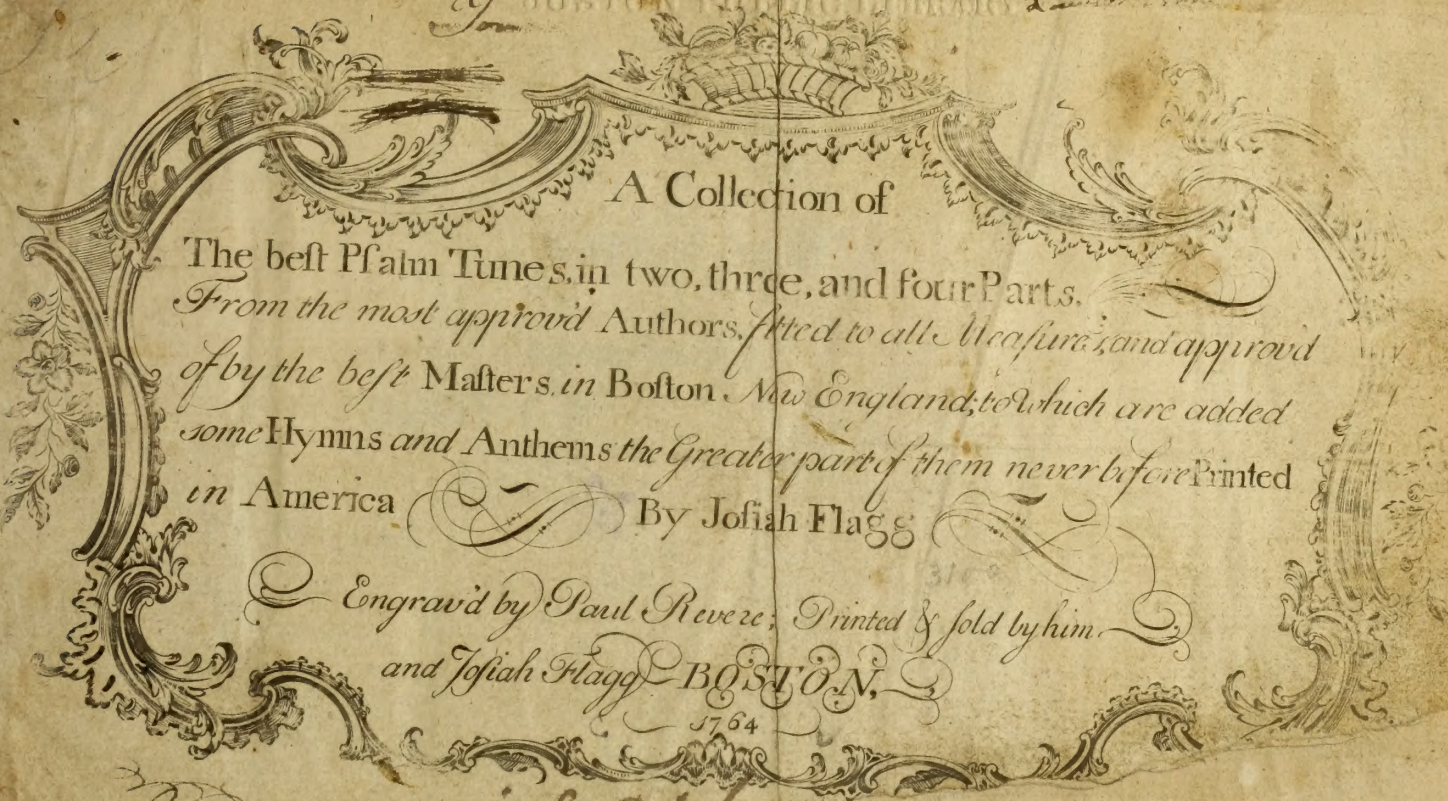 A Collection of
The beſt Pſalm Tunes, in two, three, and four Parts,
From the most approv'd Authors, fitted to all Meaſures, and approv'd
of by the beſt Maſters in Boſton New England; to which are added
some Hymns and Anthems the Greater part of them never before Printed
in America By Joſiah Flagg
Engrav'd by Paul Revere; Printed & ſold by him
and Joſiah Flagg BOSTON,
1764